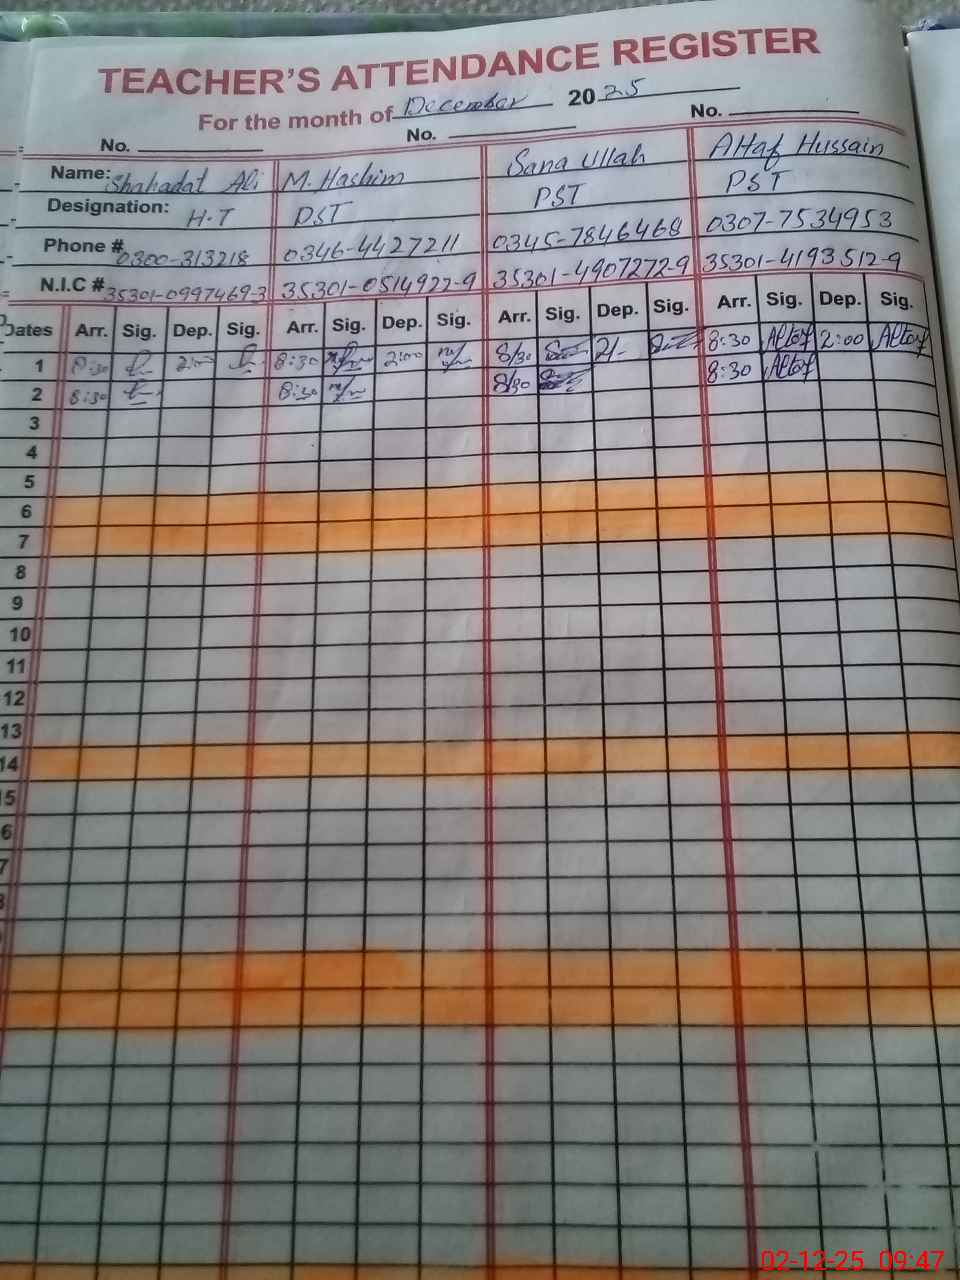 TEACHER'S ATTENDANCE REGISTER
For the month of December 2025
No. No. No.
Name: Shahadat Ali M. Hashim Sana Ullah Altaf Hussain
Designation: H-T PST PST PST
Phone # 0300-313218 0346-4427211 0345-7846468 0307-7534953
N.I.C # 35301-0997469-3 35301-0514927-9 35301-4907272-9 35301-4193512-9
Dates Arr. Sig. Dep. Sig. Arr. Sig. Dep. Sig. Arr. Sig. Dep. Sig. Arr. Sig. Dep. Sig.
1 8:30 2:00 8:30 2:00 8/30 2/- 8:30 Altaf 2:00 Altaf
2 8:30 8:30 8/30 8:30 Altaf
3
4
5
6
7
8
9
10
11
12
13
14
5
6
7
02-12-25 09:47